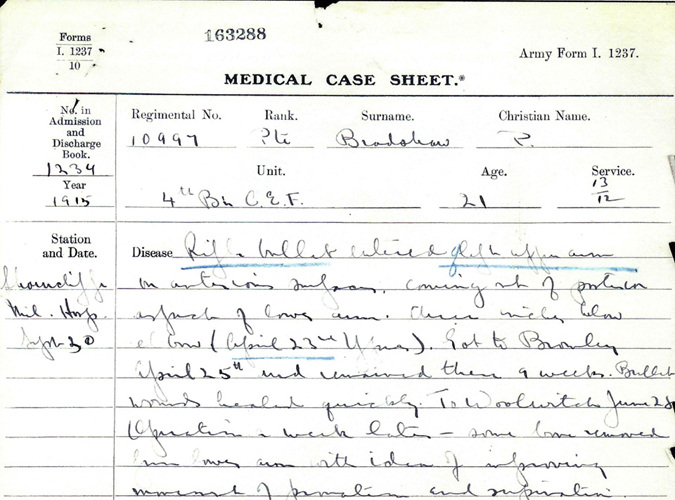 Forms
I. 1237
10
163288
Army Form I. 1237.
MEDICAL CASE SHEET.*
No. in
Admission
and
Discharge
Book.
1234
Year
1915
Regimental No. Rank. Surname. Christian Name.
10997 Pte Bradshaw P.
Unit. Age. Service.
4th Bn C.E.F. 21 13/12
Station
and Date.
Shorncliffe
Mil. Hosp.
Sept 30
Disease Rifle bullet entered left upper arm
on anterior surface, coming out of posterior
aspect of lower arm. three inches below
elbow (April 23rd Ypres). Got to Bromley
April 25th and remained there 9 weeks. Bullet
wounds healed quickly. To Woolwich June 28
(Operation a week later – some bone removed
from lower arm with idea of improving
movement of pronation and supination